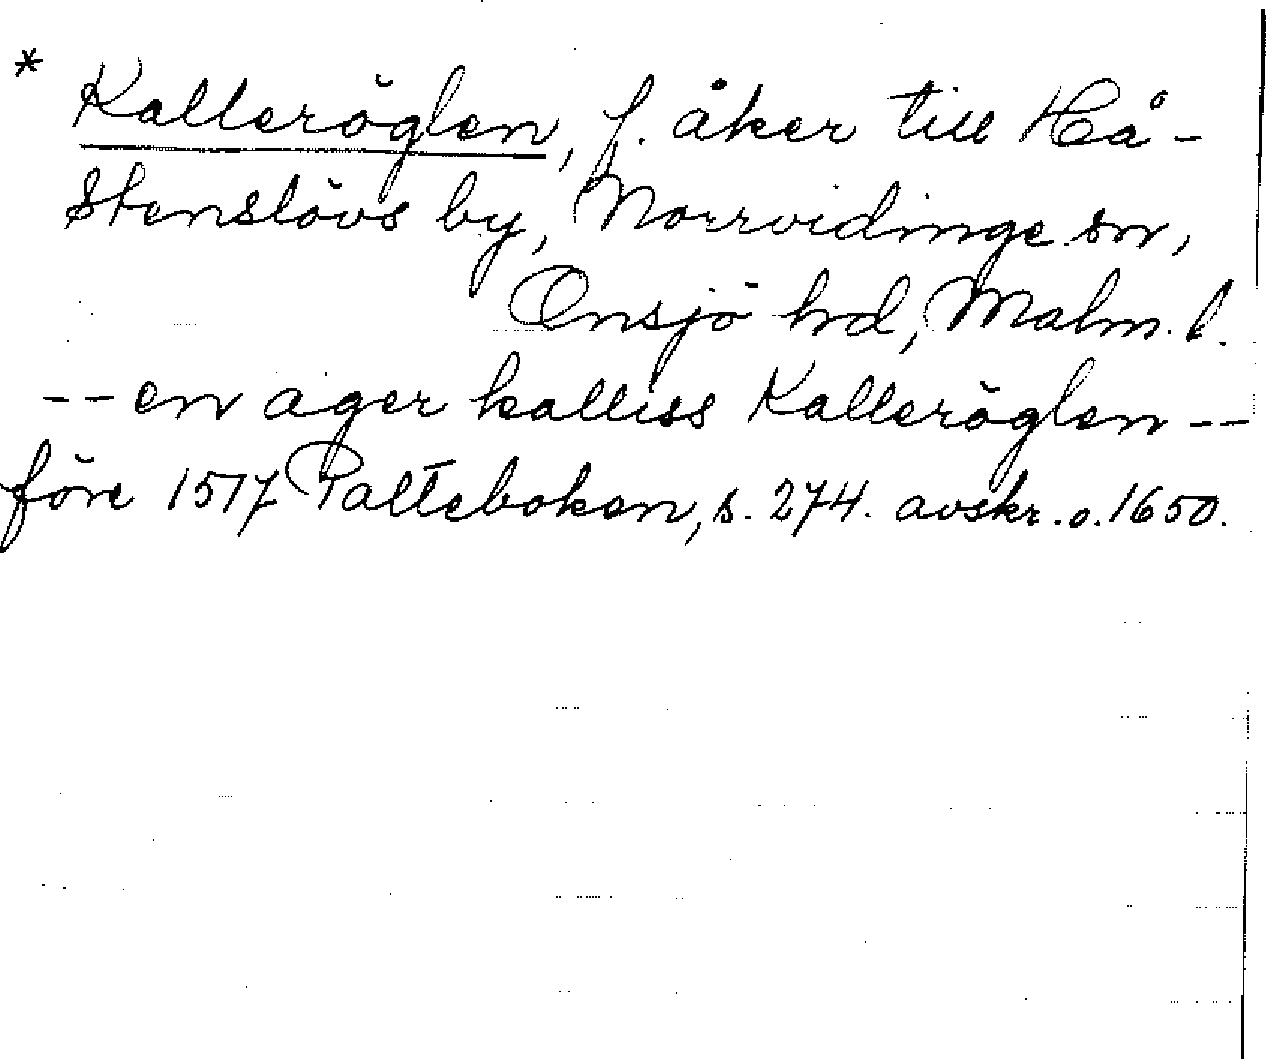 * Kalleröglen, f. åker till Hå-
stenslövs by, Norrvidinge sn,
Onsjö hd, Malm. l.
-- en ager kalliss Kalleröglen --
före 1517 Palteboken, s. 274. avskr. o. 1650.